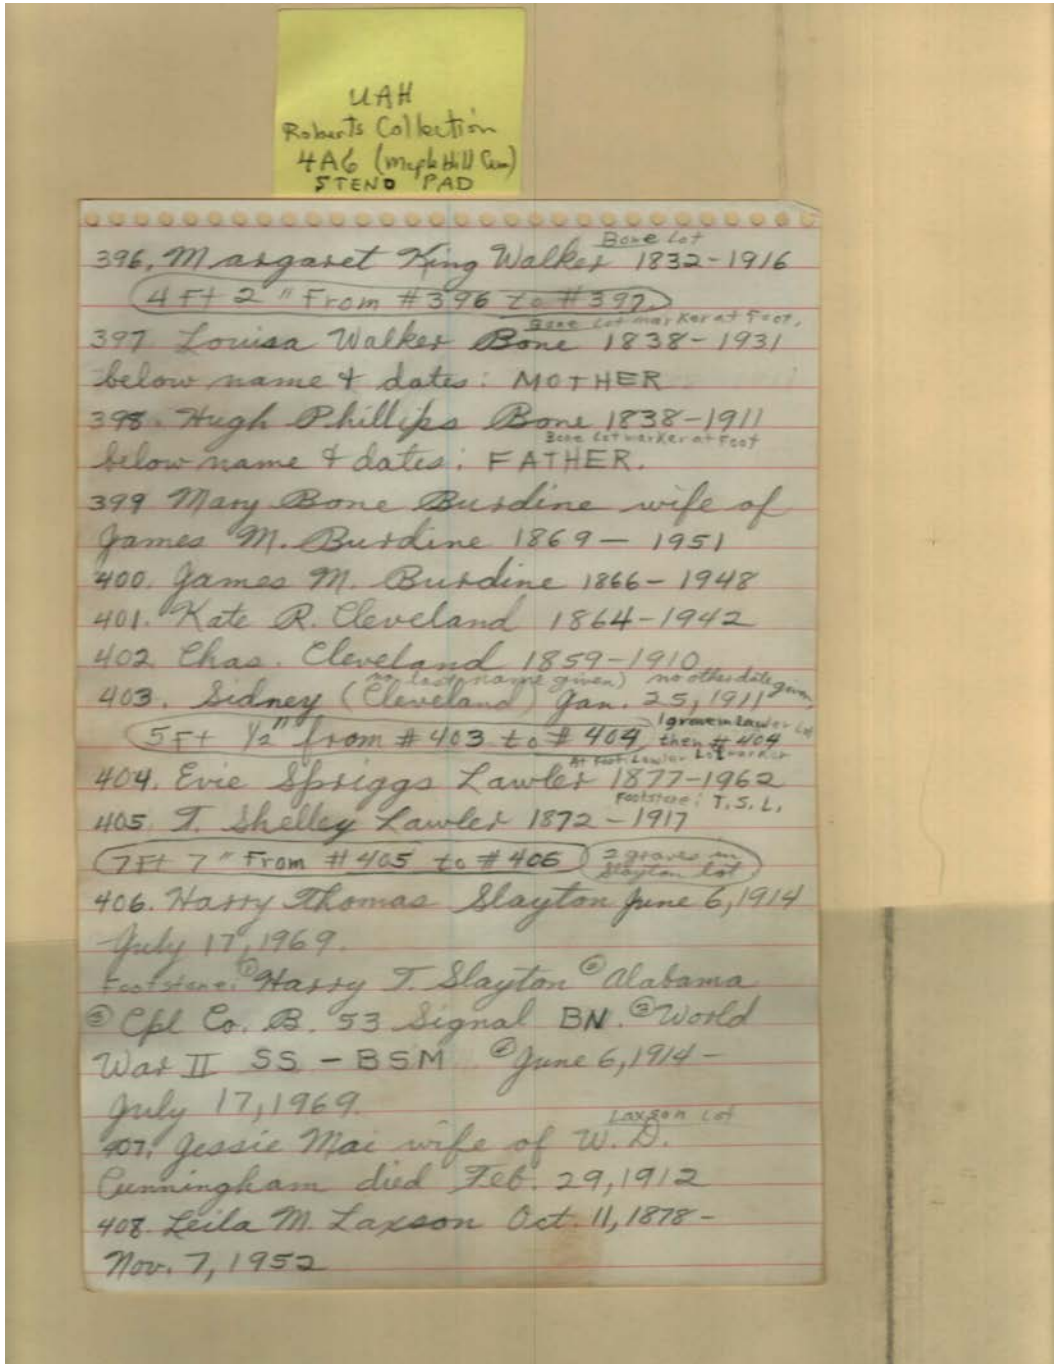 UAH
Roberts Collection
4A6 (Maple Hill Cem)
STENO PAD
Bone Lot
396. Margaret King Walker 1832-1916
4 Ft 2" From #396 to #397.
Bone Lot marker at Foot.
397 Louisa Walker Bone 1838-1931
below name & dates: MOTHER
398. Hugh Phillips Bone 1838-1911
Bone Lot marker at Foot
below name & dates: FATHER.
399 Mary Bone Burdine wife of
James M. Burdine 1869 - 1951
400. James M. Burdine 1866- 1948
401. Kate R. Cleveland 1864-1942
402. Chas. Cleveland 1859-1910
no last name given) no other date given
403. Sidney (Cleveland) Jan. 25, 1911
1 grave in Lawler Lot
5 Ft 1/2" from #403 to #404 then #404
At Foot Lawler Lot marker
404. Evie Spriggs Lawler 1877-1962
Footstone: T.S.L.
405. T. Shelley Lawler 1872-1917
7 Ft 7" From #405 to #406 2 graves in
Slayton lot
406. Harry Thomas Slayton June 6, 1914
July 17, 1969.
Footstone: ① Harry T. Slayton ② Alabama
③ Cpl Co. B. 53 Signal BN. ③ World
War II SS - BSM ④ June 6, 1914-
July 17, 1969.
Laxson Lot
407. Jessie Mai wife of W. D.
Cunningham died Feb. 29, 1912
408. Leila M. Laxson Oct. 11, 1878-
Nov. 7, 1952